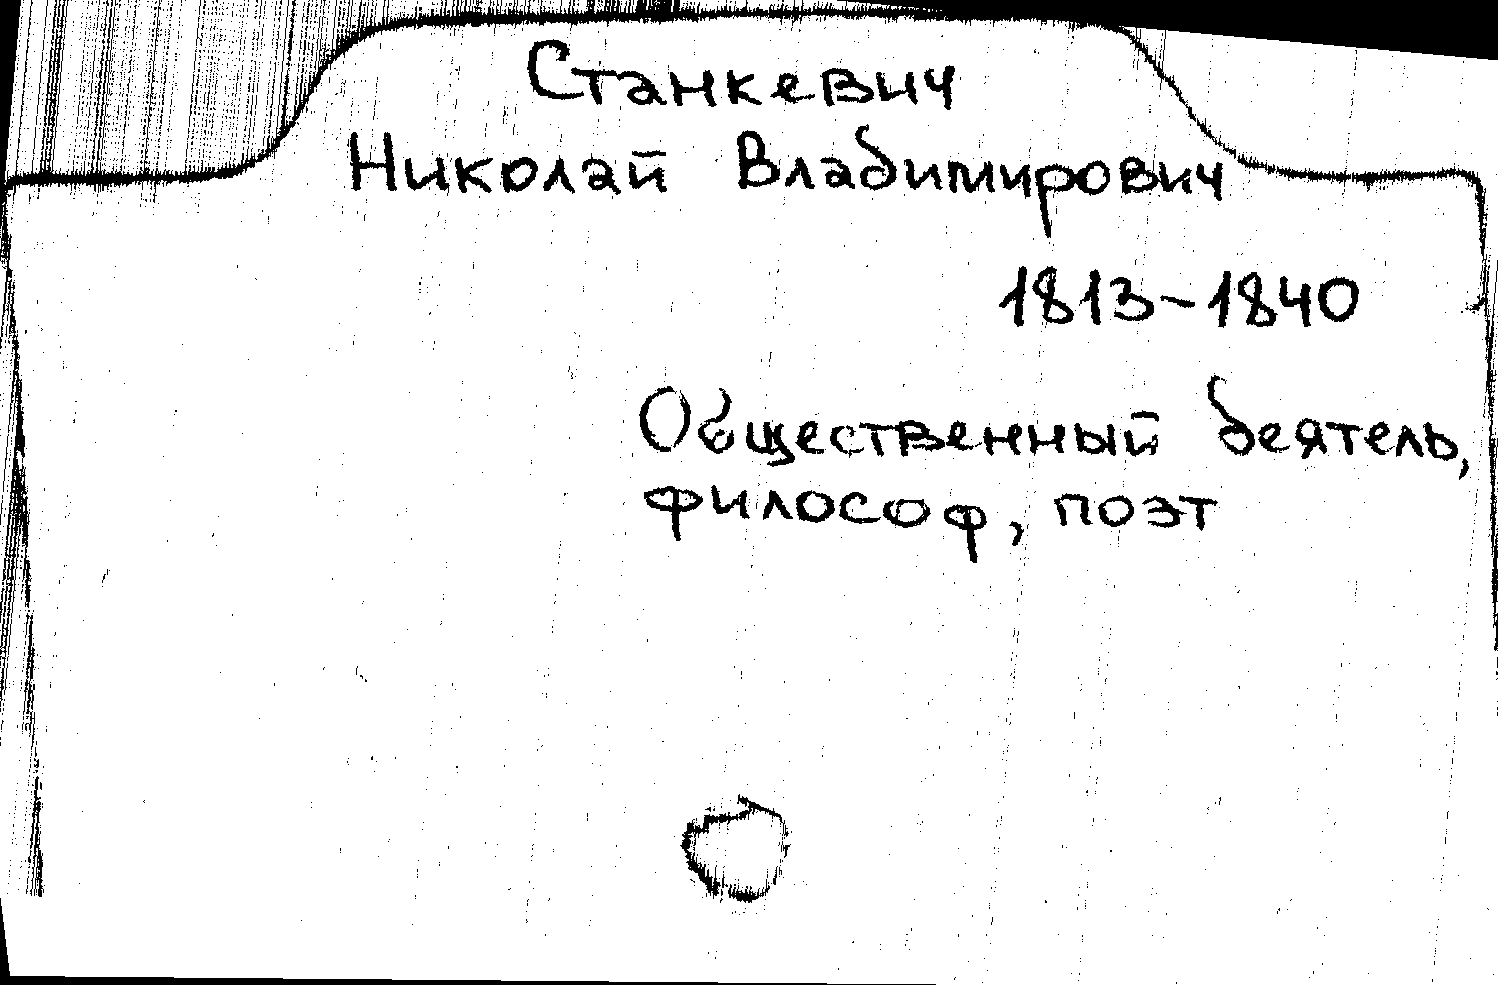 Станкевич
Николай Владимирович
1813-1840
Общественный деятель,
философ, поэт